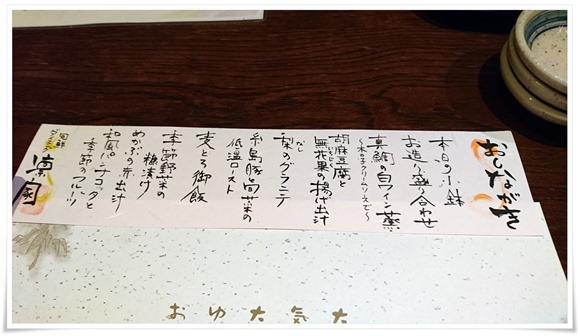 おしながき
本日の小鉢
お造り盛り合わせ
真鯛の白ワイン蒸
～木の子クリームソースで～
胡麻豆腐と
無花果の揚げ出汁
梨のグラニテ
なし
糸島豚と旬菜の
低温ロースト
麦とろ御飯
季節野菜の
糠漬け
めかぶの赤出汁
和風パンナコッタと
季節のフルーツ
旬鮮
ダイニング
凛厨
おゆ大気大